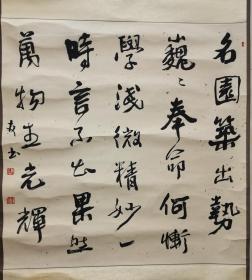 名園築出勢
巍巍奉命何慚
學淺微精妙一
時言不出果然
萬物生光輝